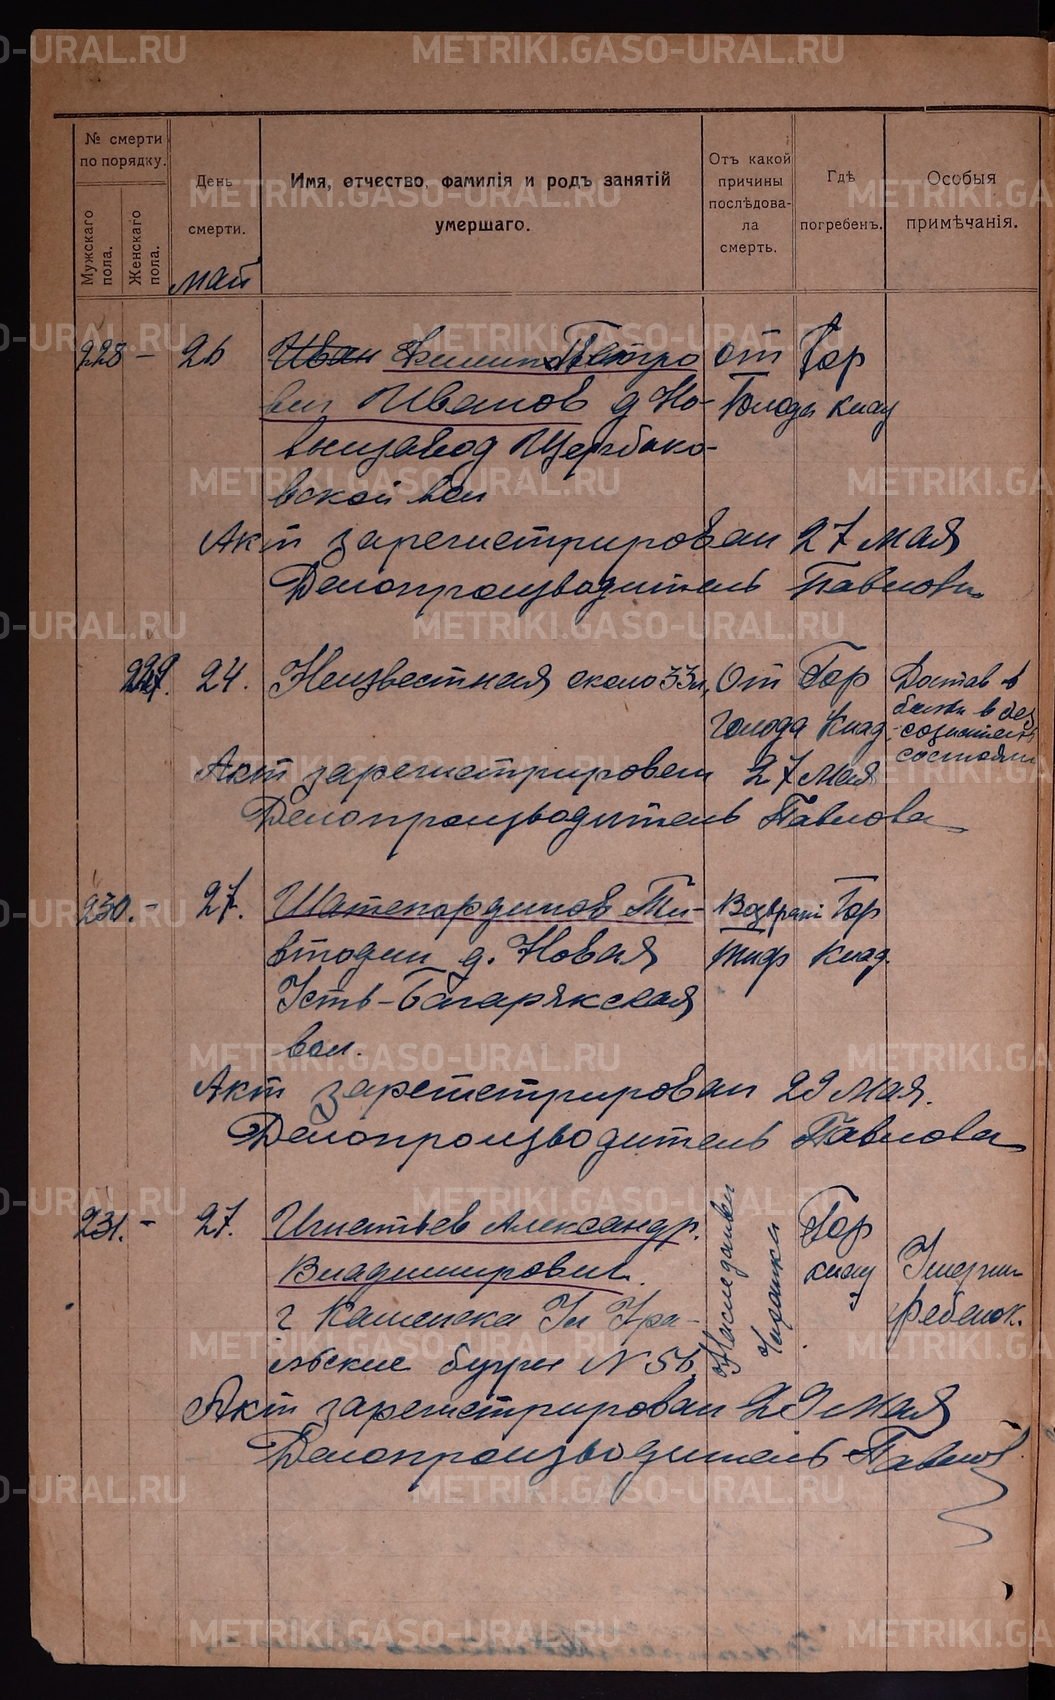 METRIKI.GASO-URAL.RU
№ смерти по порядку.
Мужскаго пола.
Женскаго пола.
День смерти.
Имя, отчество, фамилія и родъ занятій умершаго.
Отъ какой причины послѣдовала смерть.
Гдѣ погребенъ.
Особыя примѣчанія.
май
228 - 26 Иван Филипп Петро от Гор
вич Иванов д Но- Голода клад
вызавод Щербако-
вской вол
Акт зарегистрирован 27 мая
Делопроизводитель Павлова
229. 24. Неизвестная около 33 л. От Гор Достав в
Голода Клад. в без
сознательн
состоянии
Акт зарегистрирован 27 мая
Делопроизводитель Павлова
230. - 27. Возвратн Гор
д. Новая тиф клад.
Усть-Багарякская
вол.
Акт зарегистрирован 29 мая.
Делопроизводитель Павлова
231. - 27. Игнатьев Александр. Гор
Владимирович. клад Умерш
г Каменска Ул Ура- ребенок.
льские бугры N 56.
Акт зарегистрирован 29 мая
Делопроизводитель Павлов